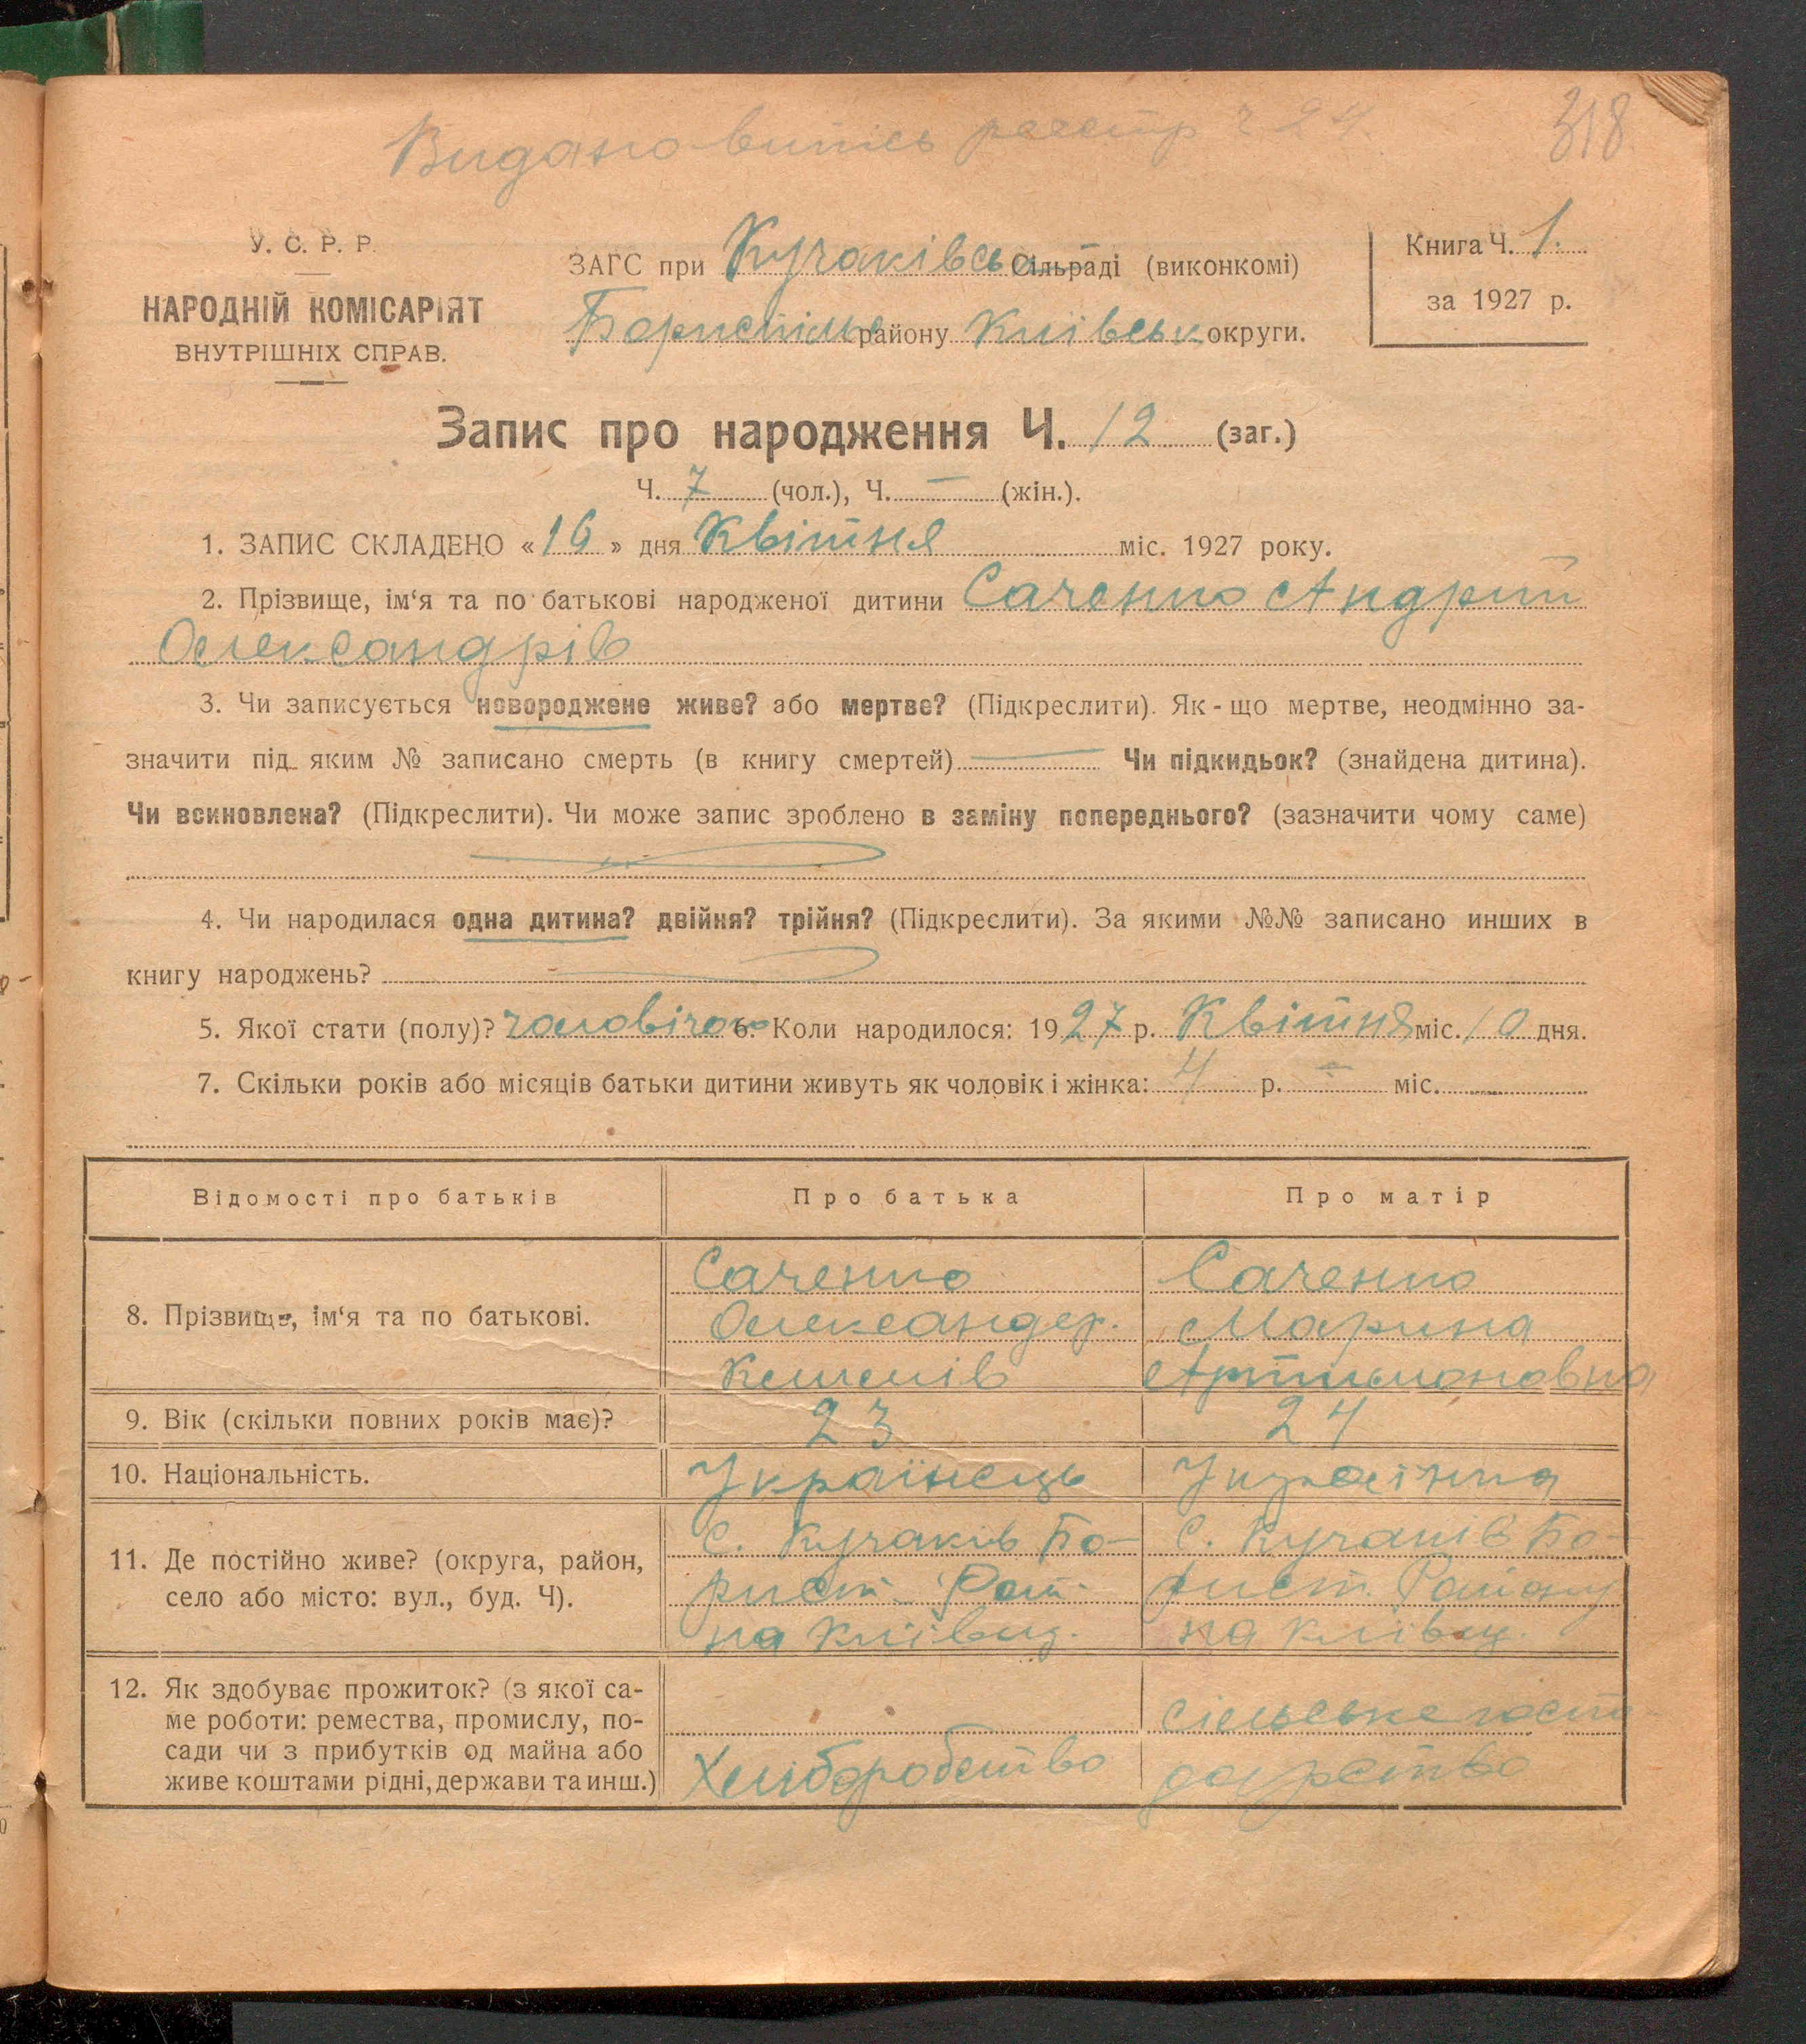 Видано витіс реєстр ч 24.
318
У. С. Р. Р.
НАРОДНІЙ КОМІСАРІЯТ
ВНУТРІШНІХ СПРАВ.
ЗАГС при Кучаківсь Сільраді (виконкомі)
Бориспільс району Київськ округи.
Книга Ч. 1.
за 1927 р.
Запис про народження Ч. 12 (заг.)
Ч. 7 (чол.), Ч. — (жін.).
1. ЗАПИС СКЛАДЕНО «16» дня Квітня міс. 1927 року.
2. Прізвище, ім‘я та по батькові народженої дитини Саченко Андрій
Олександрів
3. Чи записується новороджене живе? або мертве? (Підкреслити). Як-що мертве, неодмінно за-
значити під яким № записано смерть (в книгу смертей) — Чи підкидьок? (знайдена дитина).
Чи всиновлена? (Підкреслити). Чи може запис зроблено в заміну попереднього? (зазначити чому саме)
4. Чи народилася одна дитина? двійня? трійня? (Підкреслити). За якими №№ записано инших в
книгу народжень?
5. Якої стати (полу)? чоловічого 6. Коли народилося: 1927 р. Квітня міс. 10 дня.
7. Скільки років або місяців батьки дитини живуть як чоловік і жінка: 4 р. — міс.
Відомості про батьків Про батька Про матір
8. Прізвище, ім‘я та по батькові.
Саченко
Олександер.
Саченко
Марина
Артимоновна
9. Вік (скільки повних років має)? 23 24
10. Національність. Українець Українка
11. Де постійно живе? (округа, район,
село або місто: вул., буд. Ч).
С. Кучаків Бо-
рисп. Рай.
на Київщ.
С. Кучаків Бо-
рисп. Району
на Київщ.
12. Як здобуває прожиток? (з якої са-
ме роботи: ремества, промислу, по-
сади чи з прибутків од майна або
живе коштами рідні, держави та инш.)
Хліборобство
сільське госпо
дарство